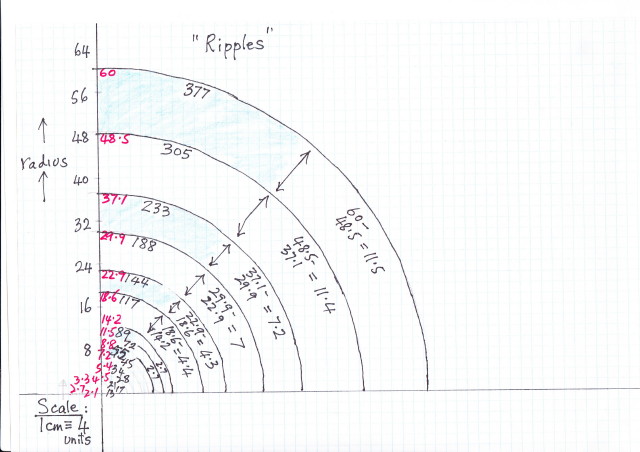 "Ripples"
64
60
377
56
48
48.5
305
radius
40
37.1
233
32
29.9
188
24
22.9
144
18.6
117
16
14.2
11.5
89
8.8
72
8
7.2
5.4
34
45
28
2.7
2.1
13
17
60-
48.5 = 11.5
48.5-
37.1 = 11.4
37.1-
29.9 = 7.2
29.9-
22.9 = 7
22.9-
18.6 = 4.3
18.6-
14.2 = 4.4
2.7
2.7
Scale:
1cm ≡ 4
units